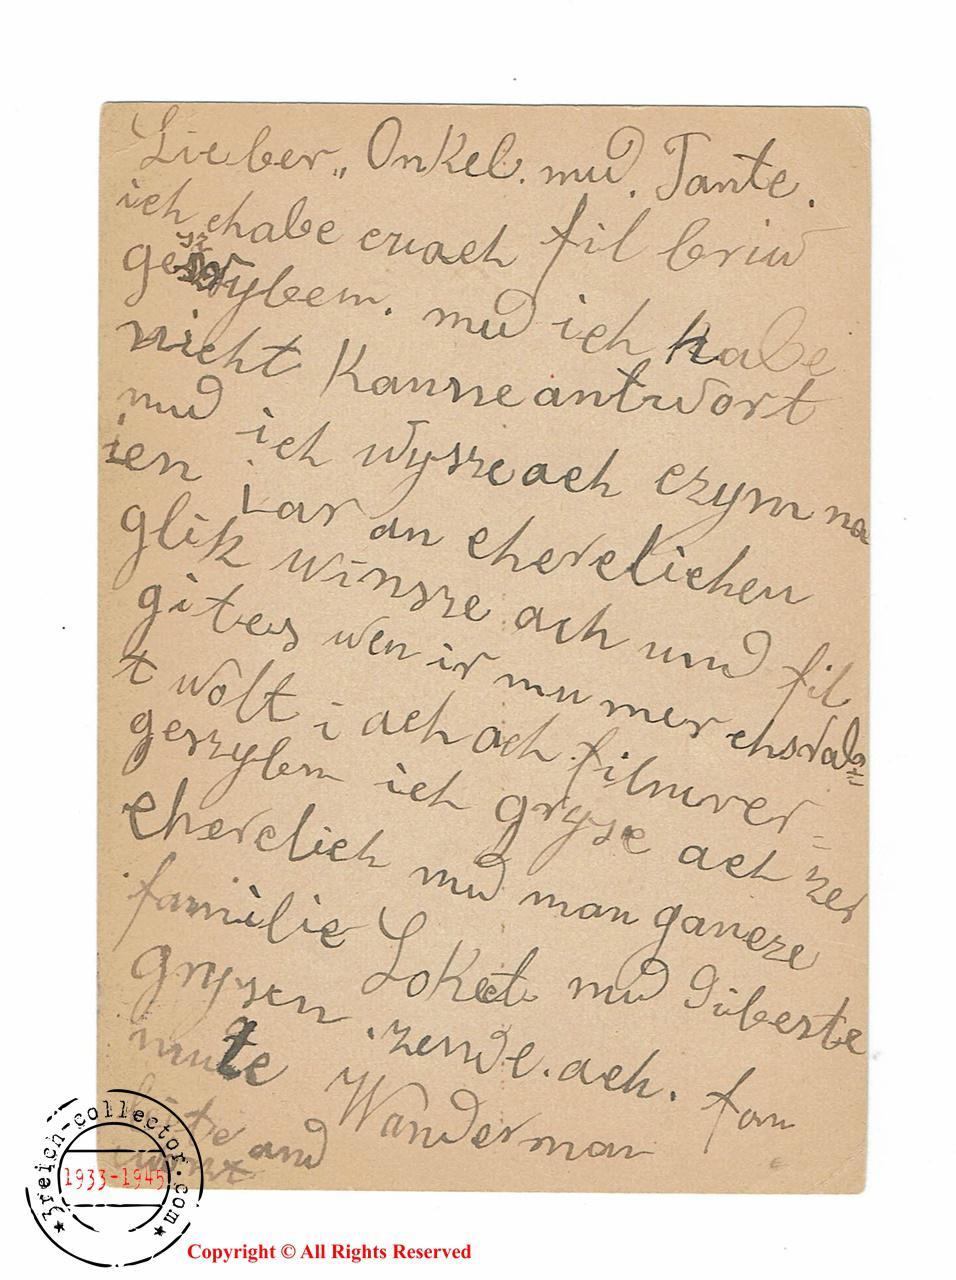 Lieber,, Onkel. und. Tante.
ich chabe czuach fil briw
gesz wybem. und ich habe
nicht Kanne antwort
und ich wyszeach czym na
ien iar an cherelichen
glik winsze ach und fil
gites wen ir mu mer chswal=
t wolt i ach ach filmver=
geszybm ich gryse ach zer
cherelich und man gancze
familie Loket und Giberte
grysen. zende. ach. fon
mute Wanderman
bite and
twort
3reich-collector.com
1933-1945
Copyright © All Rights Reserved